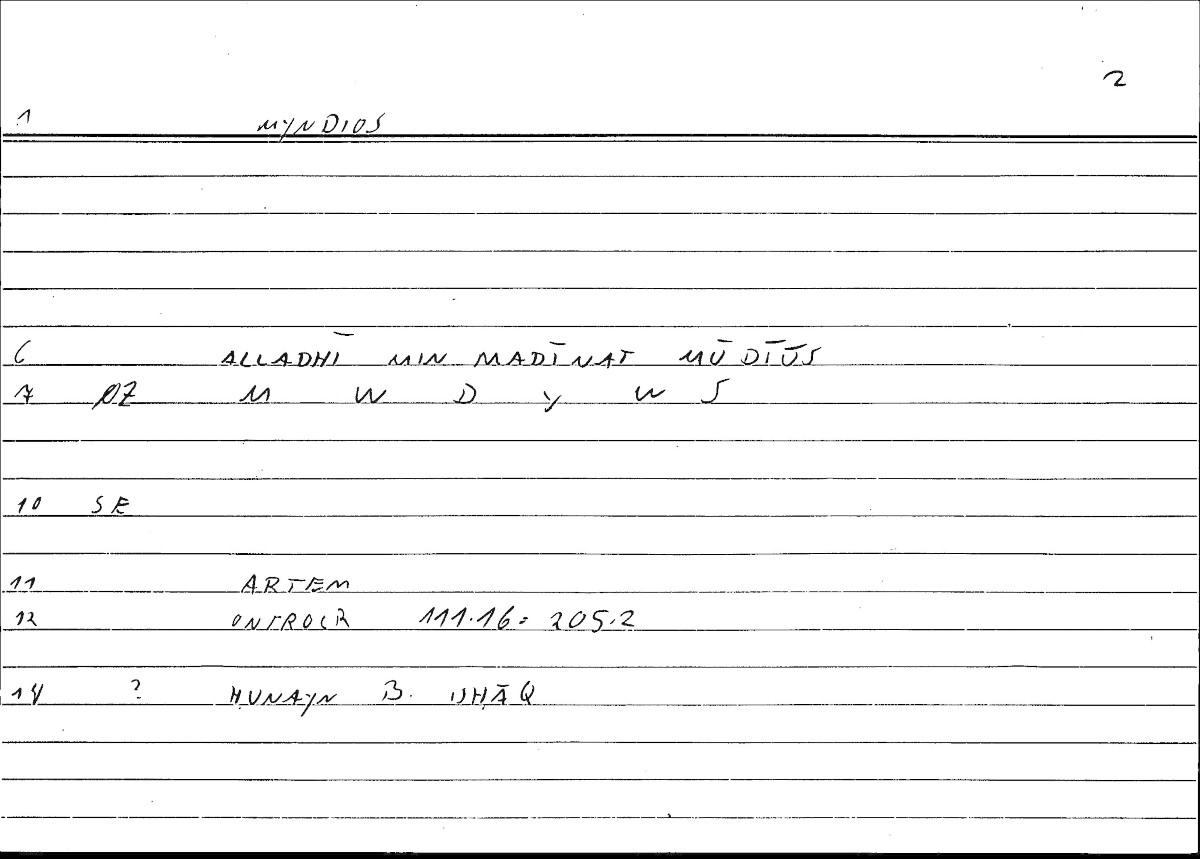 2
1 MYNDIOS
6 ALLADHĪ MIN MADĪNAT MŪDĪŪS
7 ØZ M W D Y W S
10 SE
11 ARTEM
12 ONIROCR 111.16 = 205.2
14 ? ḤUNAYN B. ISḤĀQ